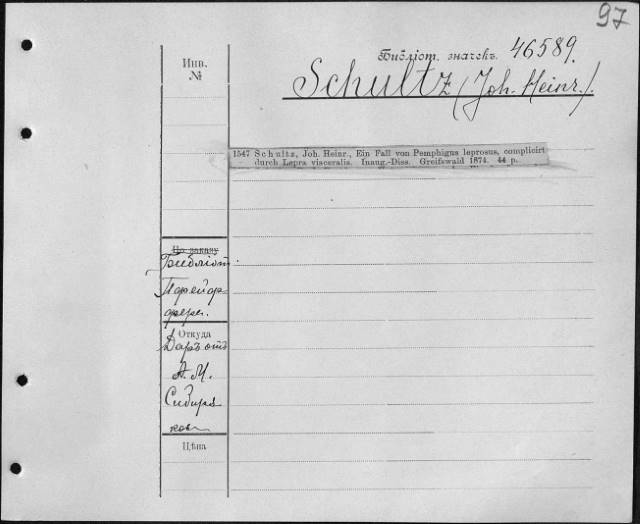 97
Библіот. значекъ. 46589.
Schultz (Joh. Heinr.).
Инв.
№
1547 Schultz, Joh. Heinr., Ein Fall von Pemphigus leprosus, complicirt
durch Lepra visceralis. Inaug.-Diss. Greifswald 1874. 44 p.
По заказу
Библіот.
Пфейф-
фера.
Откуда
Даръ отъ
А. М.
Сибиря
кова
Цѣна